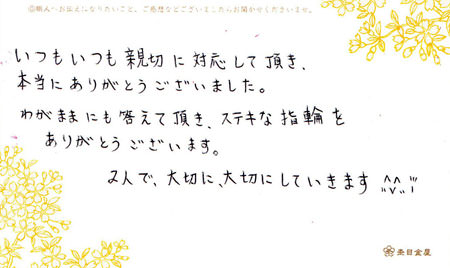 ⑤職人へお伝えになりたいこと、ご感想などございましたらお聞かせくださいませ。
いつもいつも親切に対応して頂き、
本当にありがとうございました。
わがままにも答えて頂き、ステキな指輪を
ありがとうございます。
2人で、大切に、大切にしていきます ^^
杢目金屋